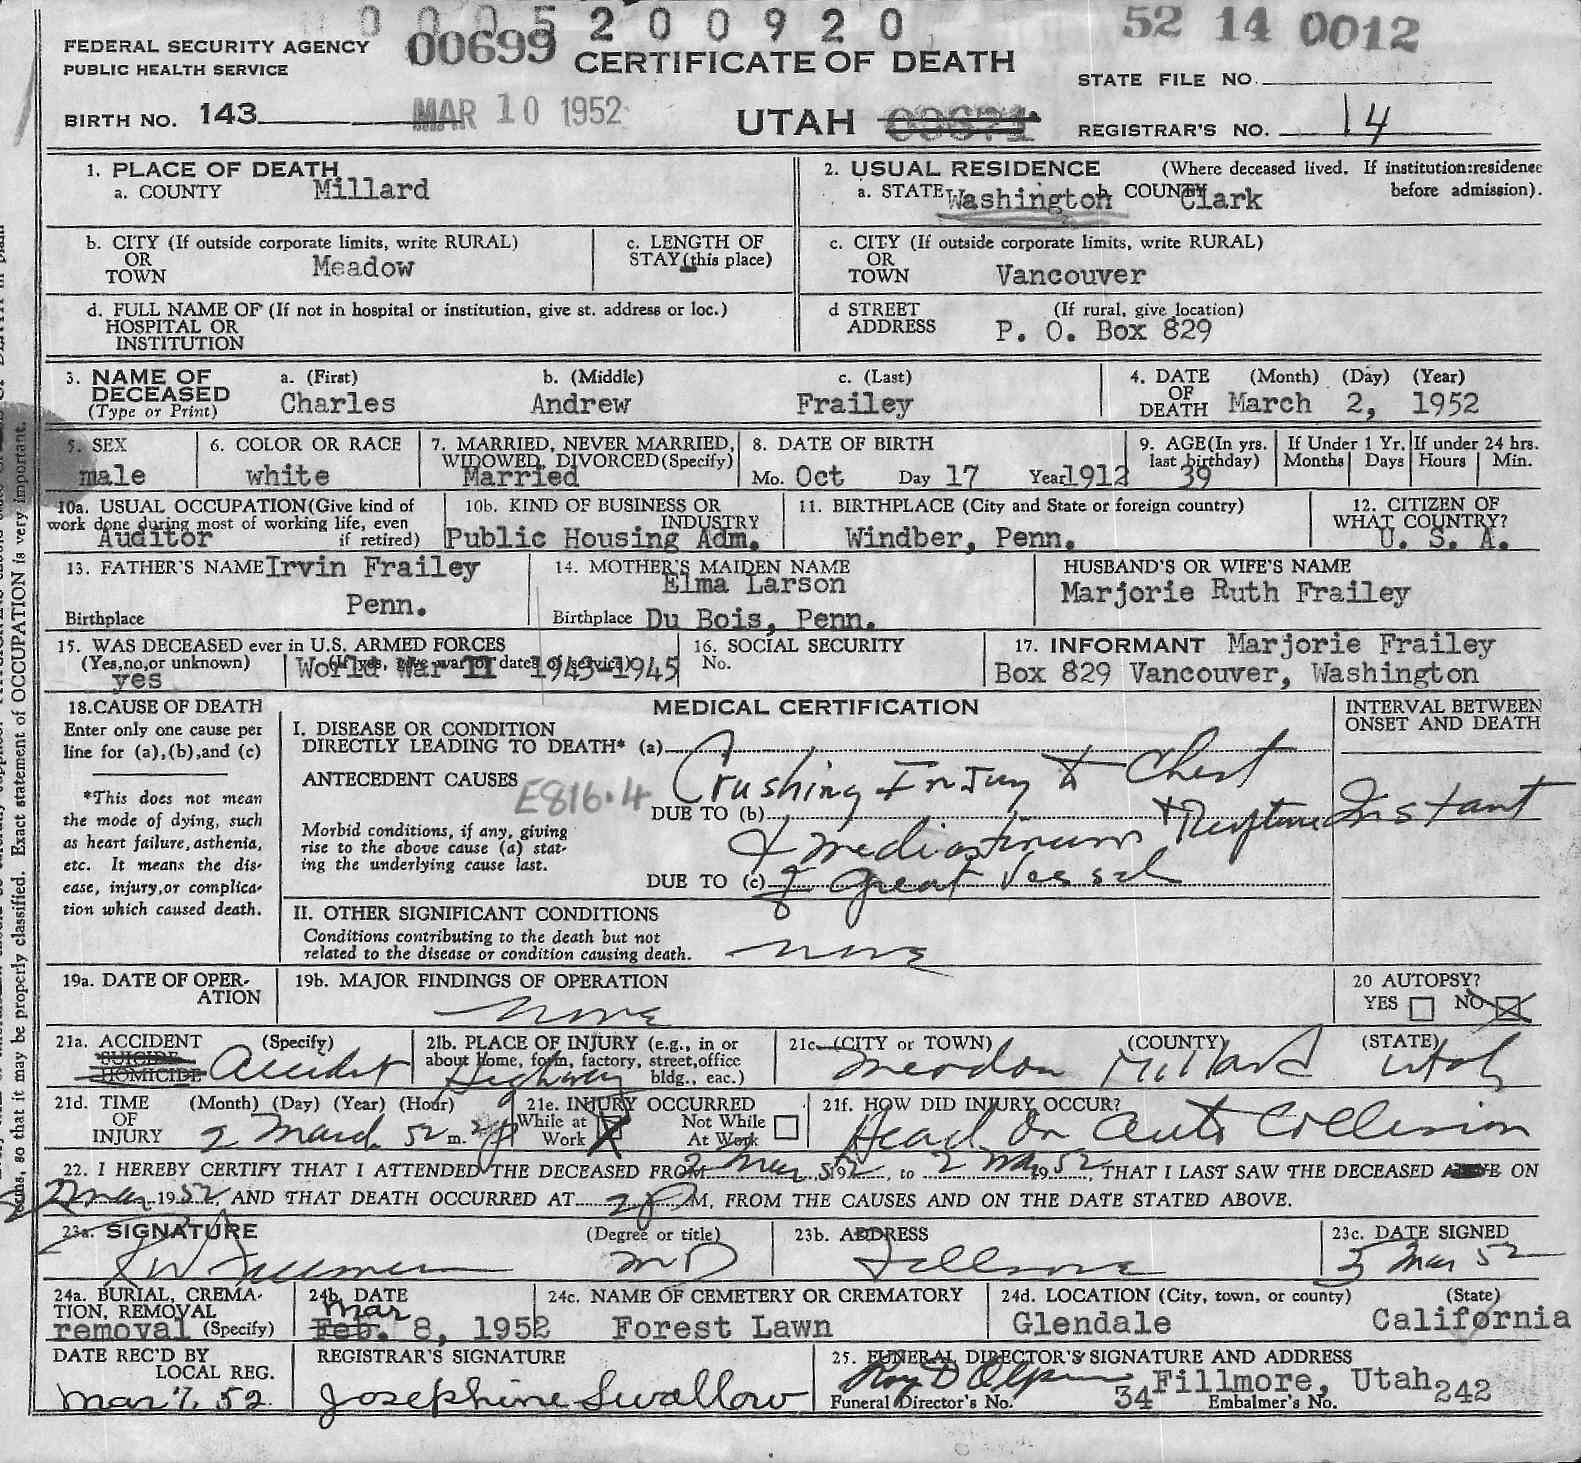 0 0 0 5 2 0 0 9 2 0
52 14 0012
FEDERAL SECURITY AGENCY
PUBLIC HEALTH SERVICE
00699
CERTIFICATE OF DEATH
STATE FILE NO.
BIRTH NO. 143
MAR 10 1952
UTAH
REGISTRAR'S NO. 14
1. PLACE OF DEATH
a. COUNTY Millard
2. USUAL RESIDENCE (Where deceased lived. If institution:residence before admission).
a. STATE Washington b COUNTY Clark
b. CITY (If outside corporate limits, write RURAL)
OR
TOWN Meadow
c. LENGTH OF
STAY (this place)
c. CITY (If outside corporate limits, write RURAL)
OR
TOWN Vancouver
d. FULL NAME OF (If not in hospital or institution, give st. address or loc.)
HOSPITAL OR
INSTITUTION
d STREET (If rural, give location)
ADDRESS P. O. Box 829
3. NAME OF DECEASED (Type or Print)
a. (First) Charles
b. (Middle) Andrew
c. (Last) Frailey
4. DATE OF DEATH (Month) (Day) (Year)
March 2, 1952
5. SEX male
6. COLOR OR RACE white
7. MARRIED, NEVER MARRIED, WIDOWED, DIVORCED (Specify) Married
8. DATE OF BIRTH
Mo. Oct Day 17 Year 1912
9. AGE (In yrs. last birthday) 39
If Under 1 Yr. Months Days
If under 24 hrs. Hours Min.
10a. USUAL OCCUPATION (Give kind of work done during most of working life, even if retired) Auditor
10b. KIND OF BUSINESS OR INDUSTRY Public Housing Adm.
11. BIRTHPLACE (City and State or foreign country) Windber, Penn.
12. CITIZEN OF WHAT COUNTRY? U. S. A.
13. FATHER'S NAME Irvin Frailey
Birthplace Penn.
14. MOTHER'S MAIDEN NAME Elma Larson
Birthplace Du Bois, Penn.
HUSBAND'S OR WIFE'S NAME
Marjorie Ruth Frailey
15. WAS DECEASED ever in U.S. ARMED FORCES
(Yes,no,or unknown) yes
(If yes, give war or dates of service) World War II 1943-1945
16. SOCIAL SECURITY No.
17. INFORMANT Marjorie Frailey
Box 829 Vancouver, Washington
18. CAUSE OF DEATH
Enter only one cause per line for (a),(b),and (c)
*This does not mean the mode of dying, such as heart failure, asthenia, etc. It means the disease, injury, or complication which caused death.
MEDICAL CERTIFICATION
INTERVAL BETWEEN ONSET AND DEATH
I. DISEASE OR CONDITION
DIRECTLY LEADING TO DEATH* (a) Crushing Injury to Chest
ANTECEDENT CAUSES E816.4
DUE TO (b) & mediastinum + Rupture
Instant
Morbid conditions, if any, giving rise to the above cause (a) stating the underlying cause last.
DUE TO (c) of Great Vessel
II. OTHER SIGNIFICANT CONDITIONS
Conditions contributing to the death but not related to the disease or condition causing death. none
19a. DATE OF OPERATION
19b. MAJOR FINDINGS OF OPERATION
none
20 AUTOPSY?
YES NO X
21a. ACCIDENT SUICIDE HOMICIDE (Specify) Accident
21b. PLACE OF INJURY (e.g., in or about home, form, factory, street, office bldg., eac.) Highway
21c. (CITY or TOWN) (COUNTY) (STATE)
Meadow Millard Utah
21d. TIME OF INJURY (Month) (Day) (Year) (Hour)
2 March 52 m. 2 p
21e. INJURY OCCURRED
While at Work X Not While At Work
21f. HOW DID INJURY OCCUR?
Head On Auto Collision
22. I HEREBY CERTIFY THAT I ATTENDED THE DECEASED FROM 2 Mar, 1952, to 2 Mar 1952, THAT I LAST SAW THE DECEASED ON
2 Mar 1952, AND THAT DEATH OCCURRED AT 2 P M, FROM THE CAUSES AND ON THE DATE STATED ABOVE.
23a. SIGNATURE (Degree or title) MD
23b. ADDRESS Fillmore
23c. DATE SIGNED 5 Mar 52
24a. BURIAL, CREMATION, REMOVAL (Specify) removal
24b. DATE Mar Feb. 8, 1952
24c. NAME OF CEMETERY OR CREMATORY Forest Lawn
24d. LOCATION (City, town, or county) (State)
Glendale California
DATE REC'D BY LOCAL REG.
Mar 7, 52
REGISTRAR'S SIGNATURE
Josephine Swallow
25. FUNERAL DIRECTOR'S SIGNATURE AND ADDRESS
Fillmore, Utah
Funeral Director's No. 34 Embalmer's No. 242